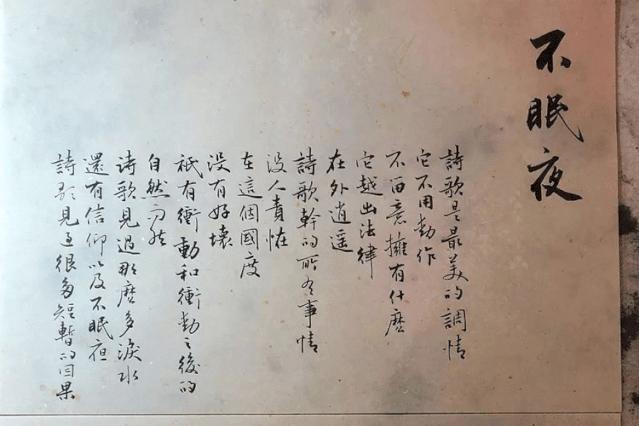 不眠夜
詩歌是最美的調情
它不用動作
不留意擁有什麽
它越出法律
在外逍遥
詩歌幹的所有事情
没人責怪
在這個國度
没有好壞
祇有衝動和衝動之後的
自然而然
诗歌見過那麽多淚水
還有信仰以及不眠夜
詩歌見過很多短暫的因果